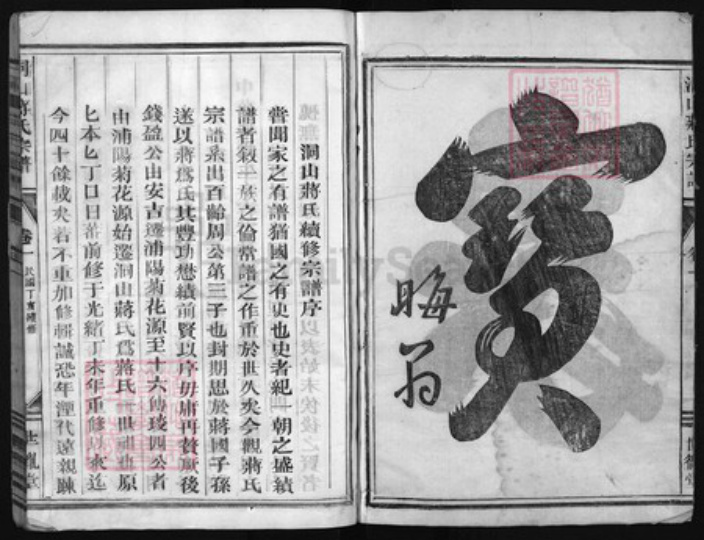 寶
晦翁
洞山蔣氏續修宗譜序
嘗聞家之有譜猶國之有史也史者紀一朝之盛績
譜者敘一族之倫常譜之作重於世久矣今觀蔣氏
宗譜系出百齡周公第三子也封期思於蔣國子孫
遂以蔣爲氏其豐功懋績前賢以序毋庸再贅厥後
錢盈公由安吉遷浦陽菊花源至十六傳琰四公者
由浦陽菊花源始遷洞山蔣氏爲蔣氏世祖由原
匕本匕丁口日蕃前修于光緒丁未年重修以來迄
今四十餘載矣若不重加修輯誠恐年湮代遠親踈
洞山蔣氏宗譜
卷一
民國丁亥續修
世徳堂